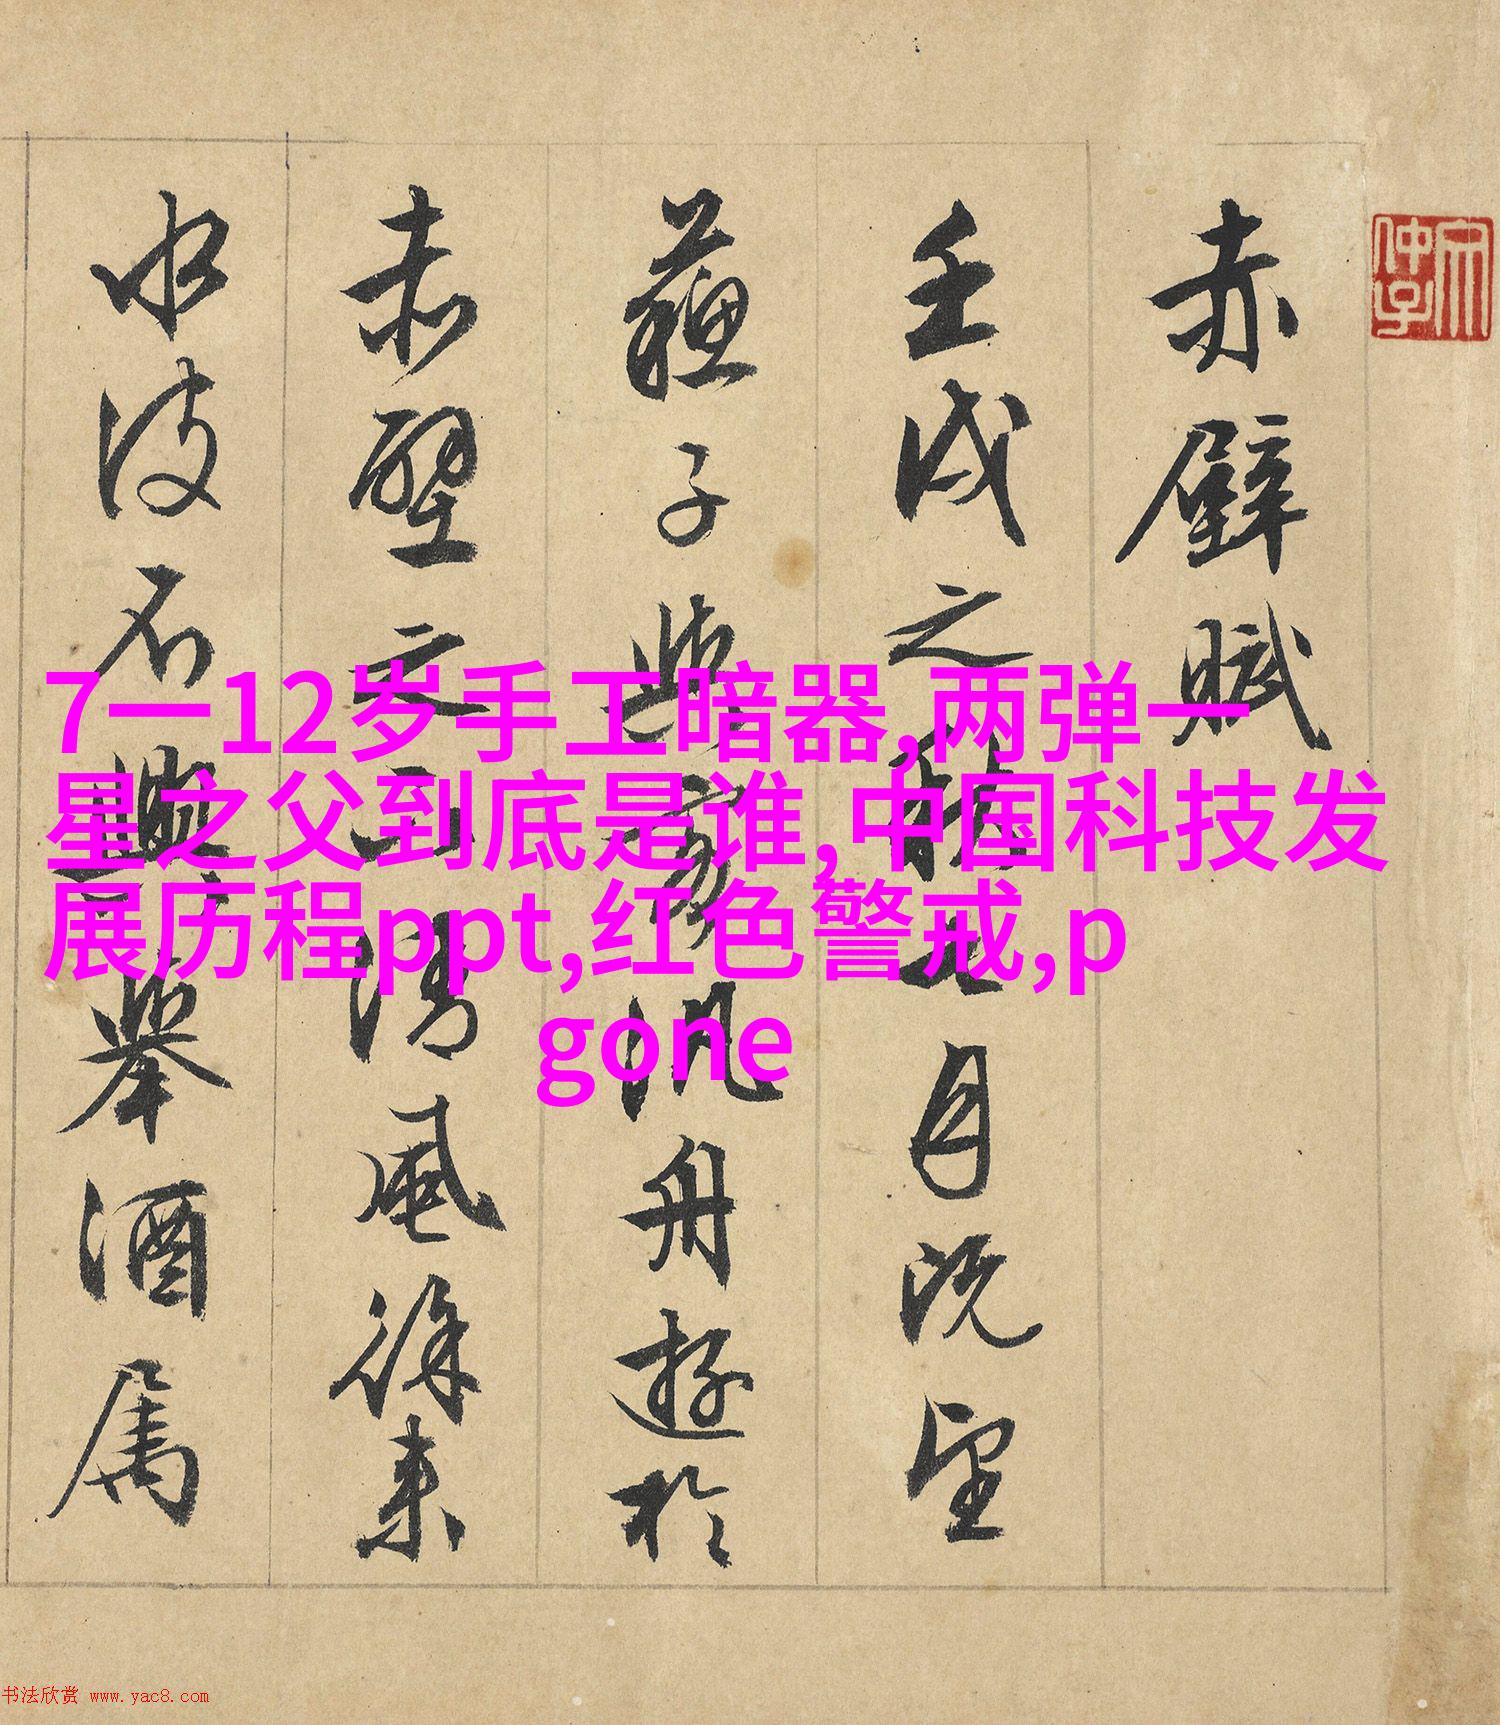 赤壁賦
壬戌之秋七月既望
蘓子與客汎舟遊於
赤壁之下清風徐来
水波不興舉酒属
7一12岁手工暗器,两弹一
星之父到底是谁,中国科技发
展历程ppt,红色警戒,p
gone
书法欣赏 www.yac8.com